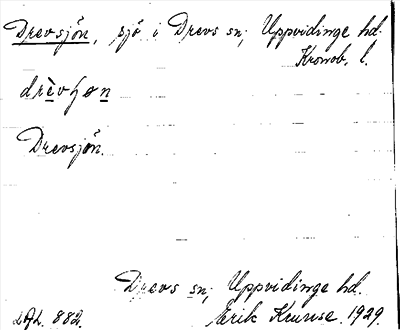 Drevsjön, sjö i Drevs sn, Uppvidinge hd.
Kronob. l.
drèvɧøn
Drevsjön.
Drevs sn, Uppvidinge hd.
LAL. 882. Erik Kruuse 1929.